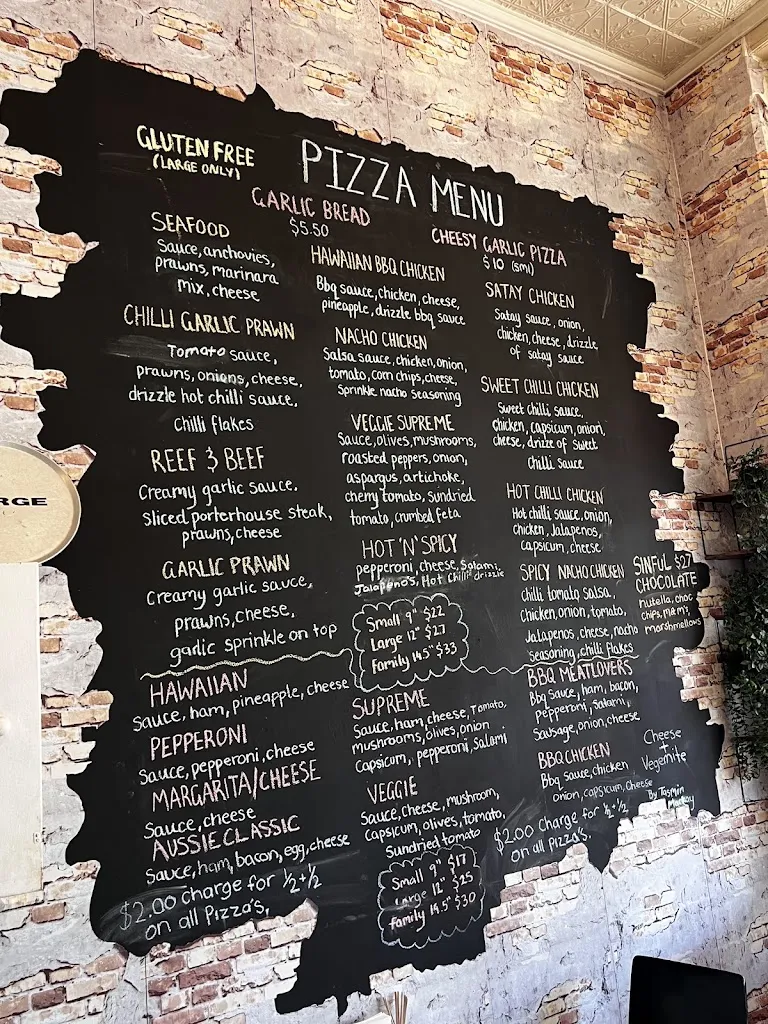 GLUTEN FREE
(LARGE ONLY)
PIZZA MENU
GARLIC BREAD
$5.50
CHEESY GARLIC PIZZA
$10 (sml)
SEAFOOD
Sauce, anchovies,
prawns, marinara
mix, cheese
CHILLI GARLIC PRAWN
Tomato sauce,
prawns, onions, cheese,
drizzle hot chilli sauce,
chilli flakes
REEF & BEEF
Creamy garlic sauce,
sliced porterhouse steak,
prawns, cheese
GARLIC PRAWN
Creamy garlic sauce,
prawns, cheese,
garlic sprinkle on top
HAWAIIAN BBQ CHICKEN
Bbq sauce, chicken, cheese,
pineapple, drizzle bbq sauce
NACHO CHICKEN
Salsa sauce, chicken, onion,
tomato, corn chips, cheese,
Sprinkle nacho seasoning
VEGGIE SUPREME
Sauce, olives, mushrooms,
roasted peppers, onion,
aspargus, artichoke,
cherry tomato, sundried
tomato, crumbed feta
HOT 'N' SPICY
pepperoni, cheese, Salami,
Jalapenos, Hot Chilli drizzle
Small 9" $22
Large 12" $27
Family 14.5" $33
SATAY CHICKEN
Satay sauce, onion,
chicken, cheese, drizzle
of satay sauce
SWEET CHILLI CHICKEN
Sweet chilli sauce,
chicken, capsicum, onion,
cheese, drizze of sweet
chilli sauce
HOT CHILLI CHICKEN
Hot chilli sauce, onion,
chicken, Jalapenos,
capsicum, cheese
SPICY NACHO CHICKEN
chilli tomato salsa,
chicken, onion, tomato,
Jalapenos, cheese, nacho
seasoning, chilli flakes
SINFUL $27
CHOCOLATE
nutella, choc
chips, m&m's,
marshmellows
HAWAIIAN
Sauce, ham, pineapple, cheese
PEPPERONI
Sauce, pepperoni, cheese
MARGARITA/CHEESE
Sauce, cheese
AUSSIE CLASSIC
Sauce, ham, bacon, egg, cheese
$2.00 charge for 1/2 + 1/2
on all Pizza's.
SUPREME
Sauce, ham, cheese, Tomato,
mushrooms, olives, onion
Capsicum, pepperoni, Salami
VEGGIE
Sauce, cheese, mushroom,
capsicum, olives, tomato,
Sundried tomato
Small 9" $17
Large 12" $25
family 14.5" $30
BBQ MEATLOVERS
Bbq Sauce, ham, bacon,
pepperoni, Salami,
Sausage, onion, cheese
BBQ CHICKEN
Bbq sauce, chicken
onion, capsicum, Cheese
$2.00 Charge for 1/2 + 1/2
on all pizza's.
Cheese
+
Vegemite
By Tasmin
RGE